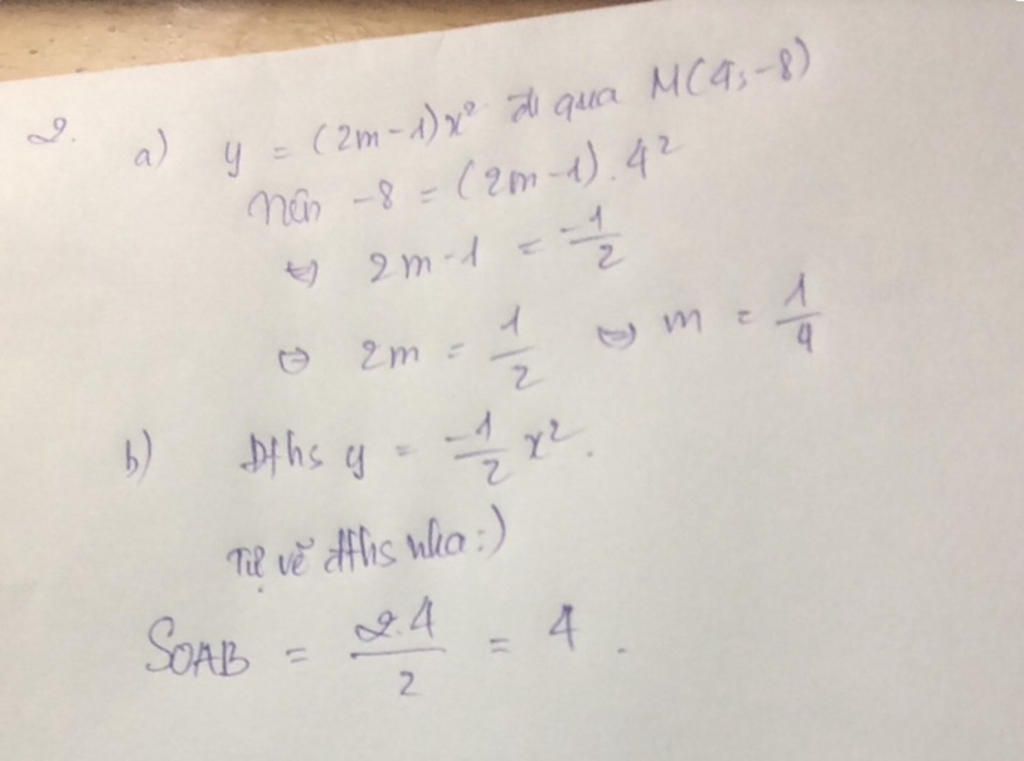 2. a) y = (2m-1)x² đi qua M(4;-8)
Nên -8 = (2m-1).4²
⇔ 2m-1 = -1/2
⇔ 2m = 1/2 ⇔ m = 1/4
b) Đths y = -1/2 x².
Tự vẽ đths nha:)
SOAB = 2.4/2 = 4.